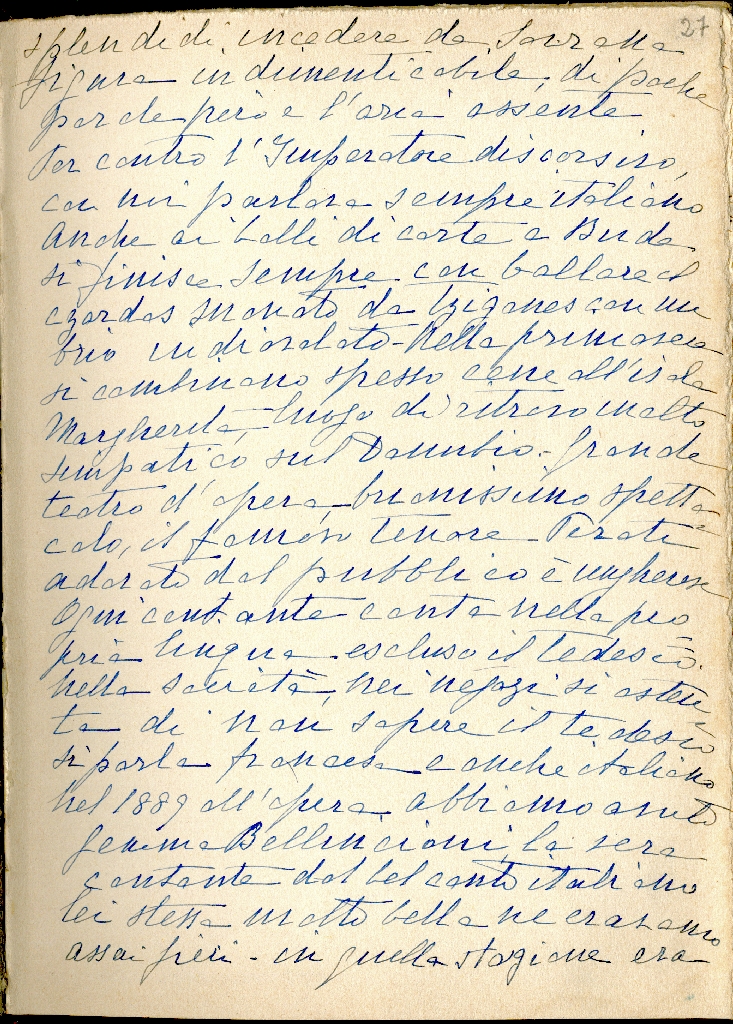 27
splendidi incedere da Sovrana
figura indimenticabile, di poche
parole però e l'aria assente
Per contro l'Imperatore discorsivo,
con noi parlava sempre italiano
Anche ai balli di corte a Buda
si finisce sempre con ballare il
czardas suonato da tzigones con un
brio indiavolato - Nella primavera
si combinano spesso cene all'isola
Margherita, luogo di ritrovo molto
simpatico sul Danubio - Grande
teatro d'opera, buonissimo spetta=
colo, il famoso tenore - Perati
adorato dal pubblico è ungherese
Ogni cantante canta nella pro
=
pria lingua - escluso il tedesco.
Nella società, nei negozi si osten=
ta di non sapere il tedesco
si parla francese e anche italiano
Nel 1889 all'opera abbiamo avuto
Gemma Bellincioni, la vera
cantante dal bel canto italiano
lei stessa molto bella ne eravamo
assai fieri - in quella stagione era